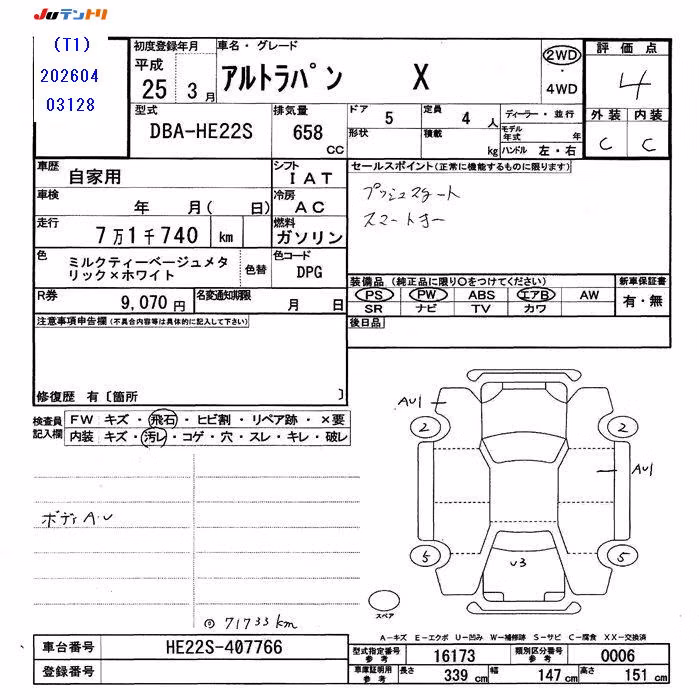 Juテントリ
(T1)
202604
03128
初度登録年月
平成
25 3月
車名・グレード
アルトラパン X
2WD
・
4WD
評価点
4
型式
DBA-HE22S
排気量
658
CC
ドア 5
定員 4 人
形状
積載 kg
ディーラー・並行
モデル年式 年
ハンドル 左・右
外装 内装
C C
車歴
自家用
シフト
IAT
車検
年 月( 日)
冷房
AC
走行
7万1千740 km
燃料
ガソリン
色
ミルクティーベージュメタ
リック×ホワイト
色替
色コード
DPG
R券
9,070円
名変通知期限
月 日
セールスポイント(正常に機能するものに限ります)
プッシュスタート
スマートキー
装備品(純正品に限り○をつけてください)
PS PW ABS エアB AW
SR ナビ TV カワ
新車保証書
有・無
後日品
注意事項申告欄(不具合内容等は具体的に記入して下さい)
修復歴 有〔箇所 〕
検査員
記入欄
FW キズ・飛石・ヒビ割・リペア跡・×要
内装 キズ・汚レ・コゲ・穴・スレ・キレ・破レ
ボディA.U
◎71733km
AU1
2
2
AU1
5
5
U3
スペア
A-キズ E-エクボ U-凹み W-補修跡 S-サビ C-腐食 XX-交換済
車台番号
HE22S-407766
登録番号
型式指定番号
参考
16173
類別区分番号
参考
0006
車庫証明用
参考
長さ 339 cm
幅 147 cm
高さ 151 cm